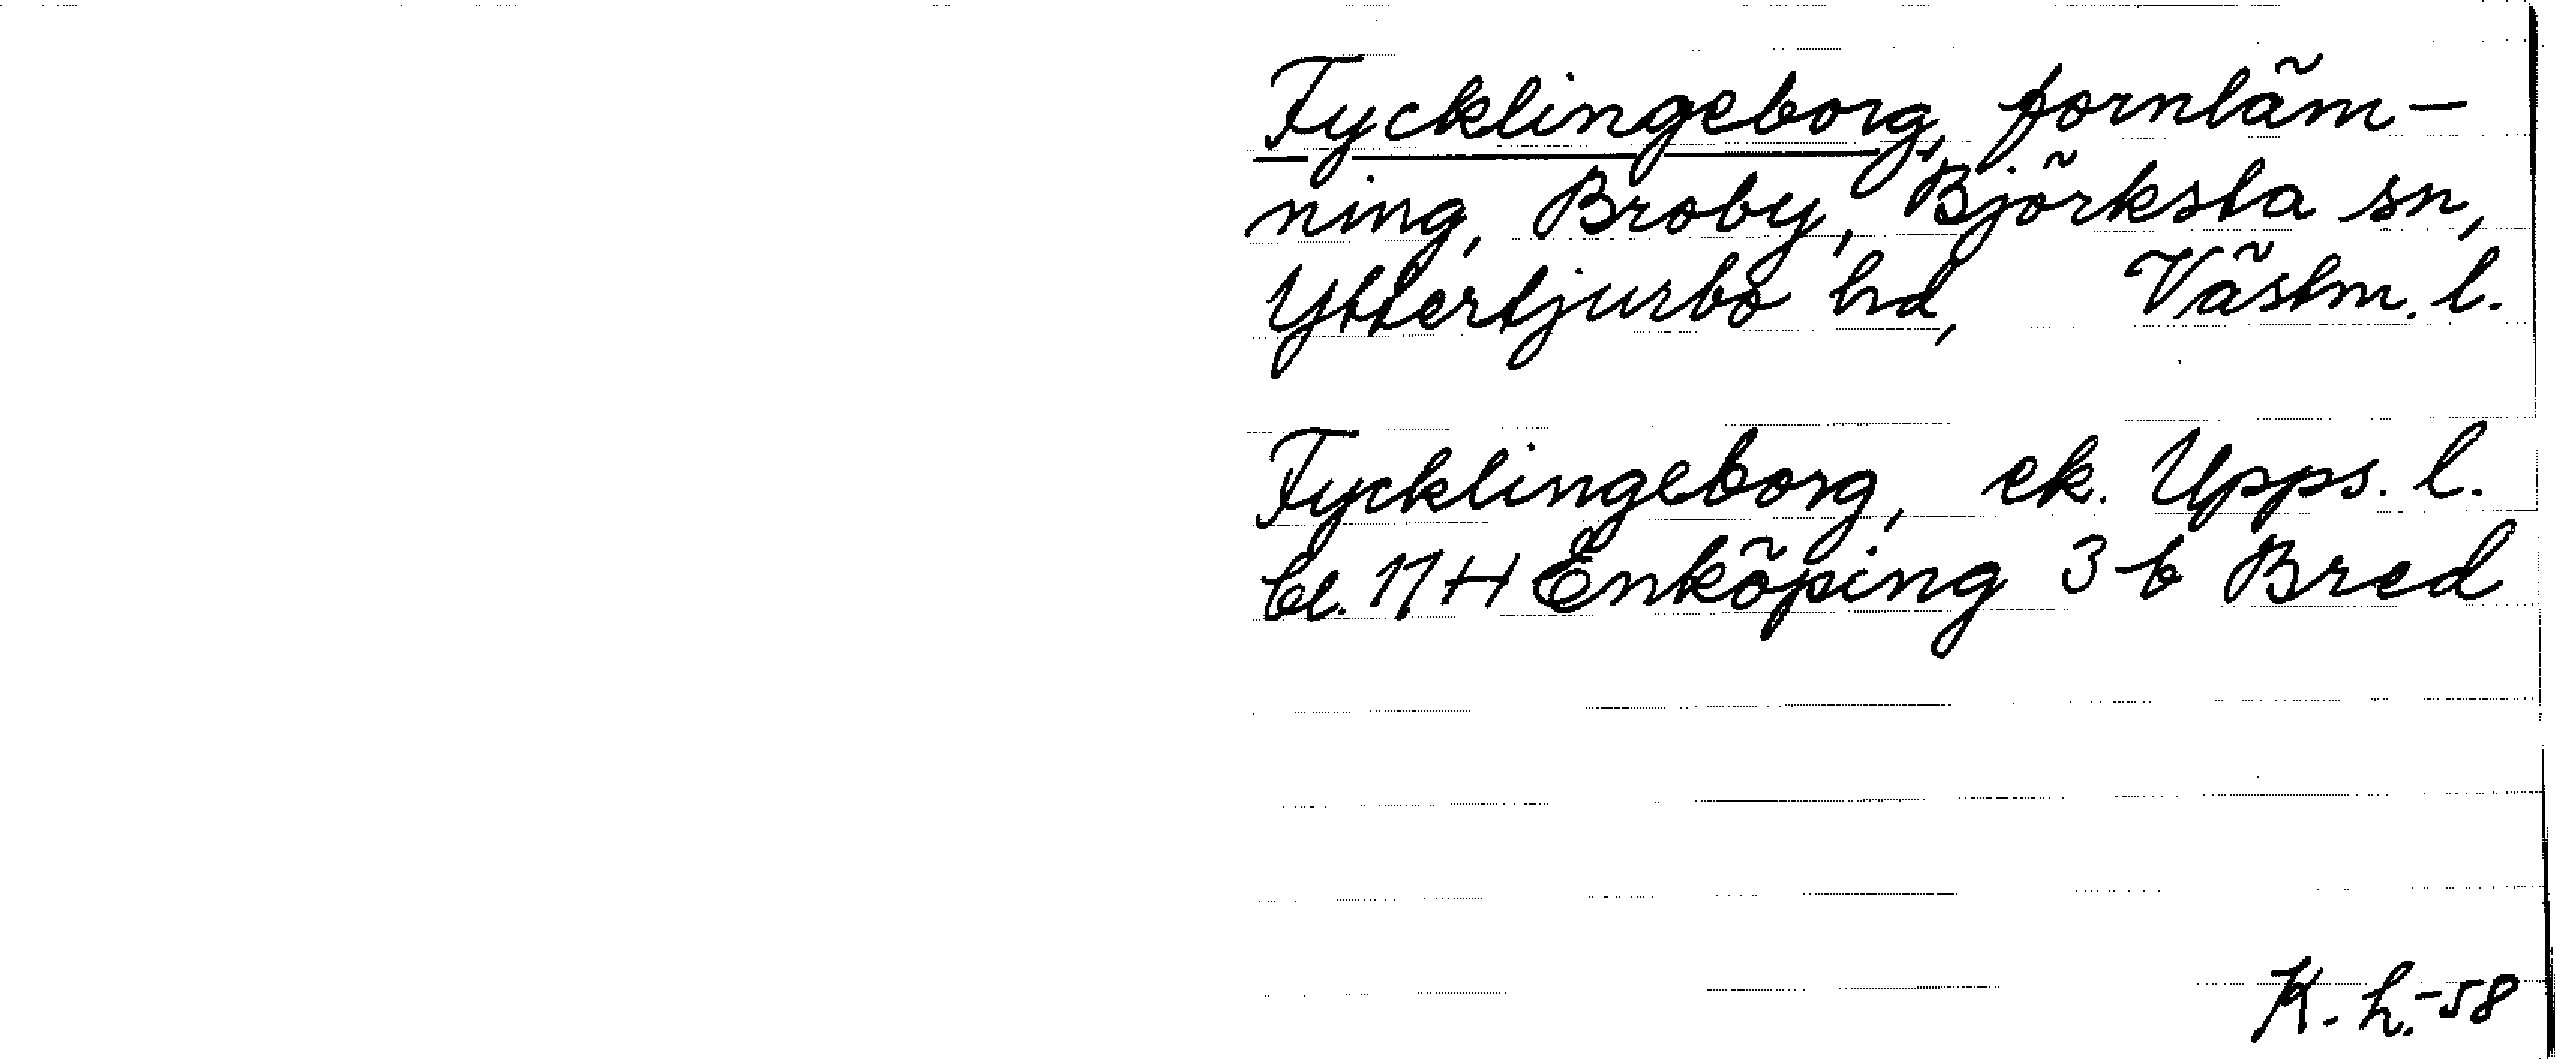 Fycklingeborg, fornläm-
ning, Broby, Björksta sn,
Yttertjurbo hd, Västm. l.
Fycklingeborg, ek. Upps. l.
bl. 11 H Enköping 3 b Bred
K. h. -58